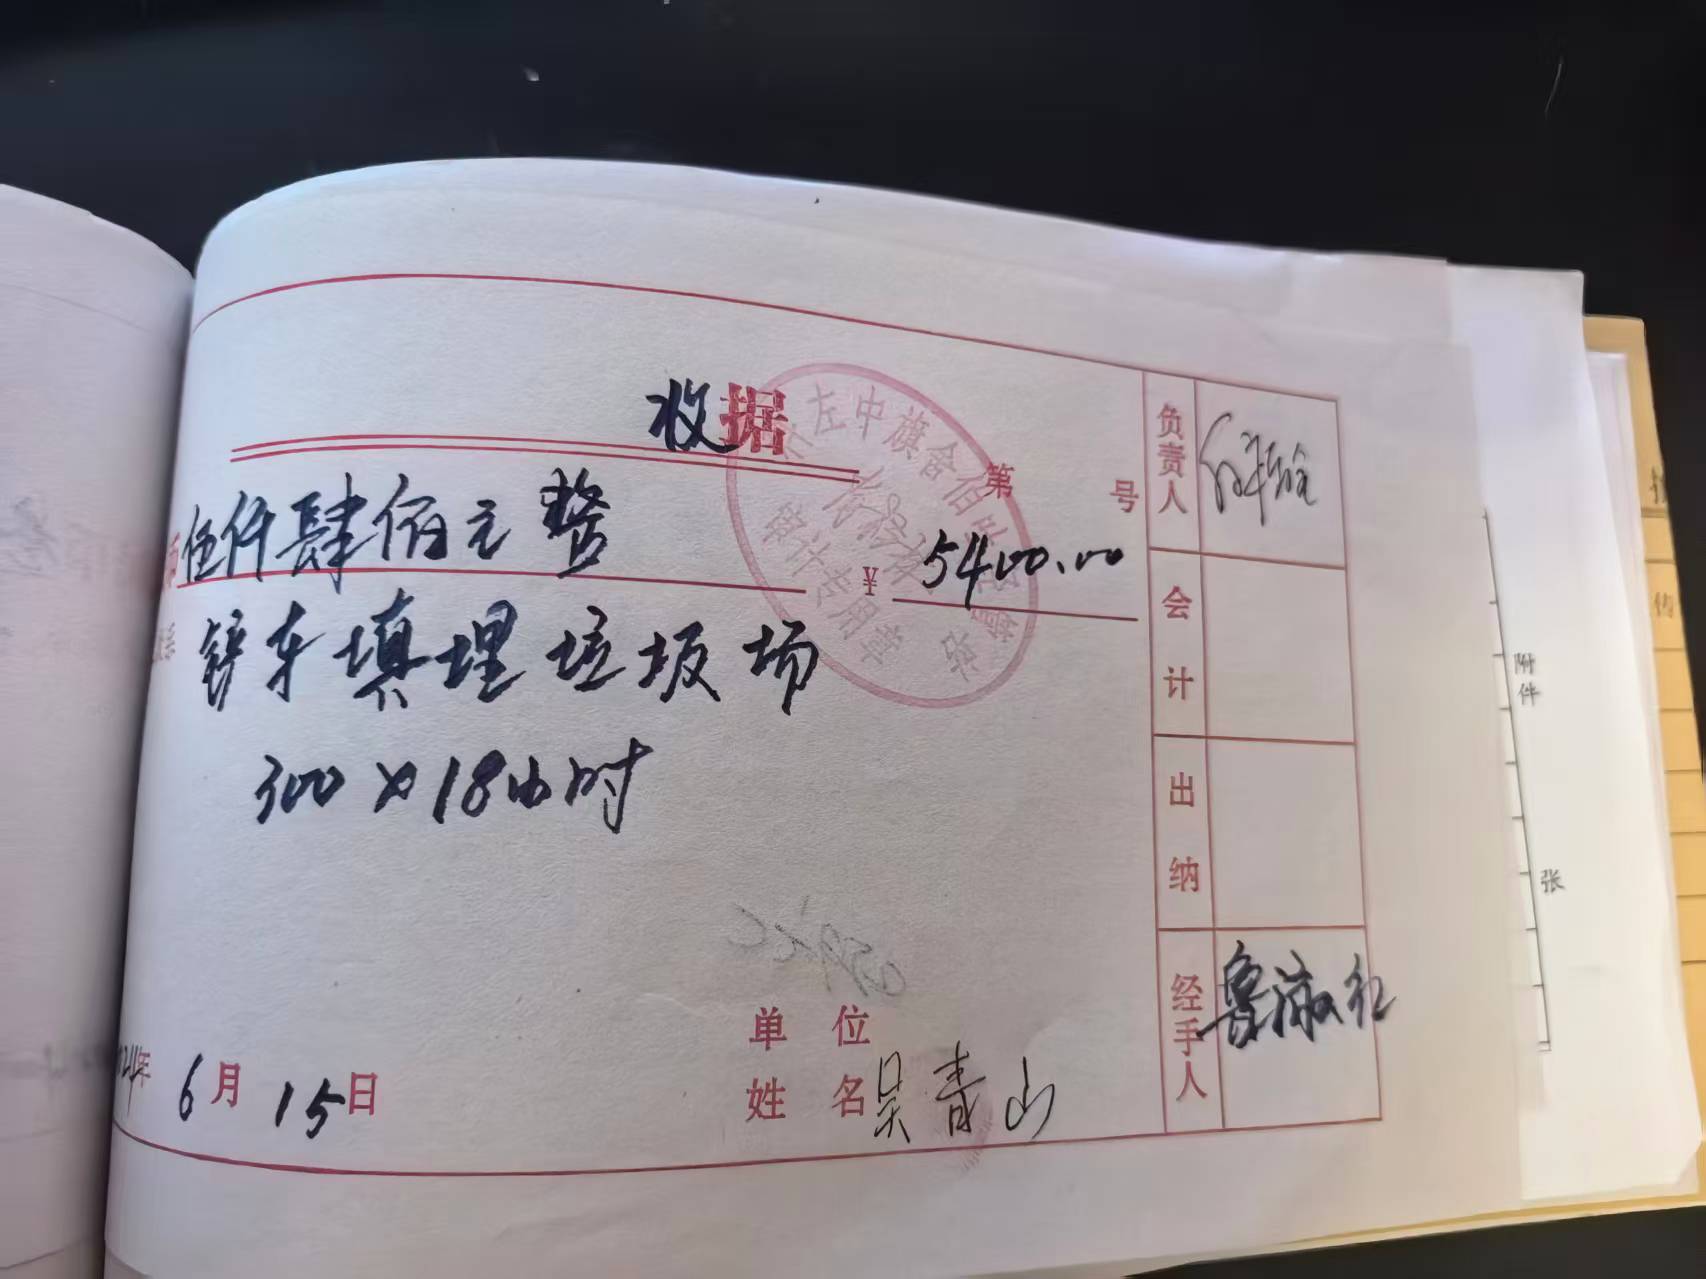 收据
第 号
伍仟肆佰元整 ¥ 5400.00
铲车填埋垃圾场
300×18小时
单位
姓名 吴青山
年 6月15日
负责人
会计
出纳
经手人 鲁淑红
左中旗舍伯吐
审计专用章
附件
张